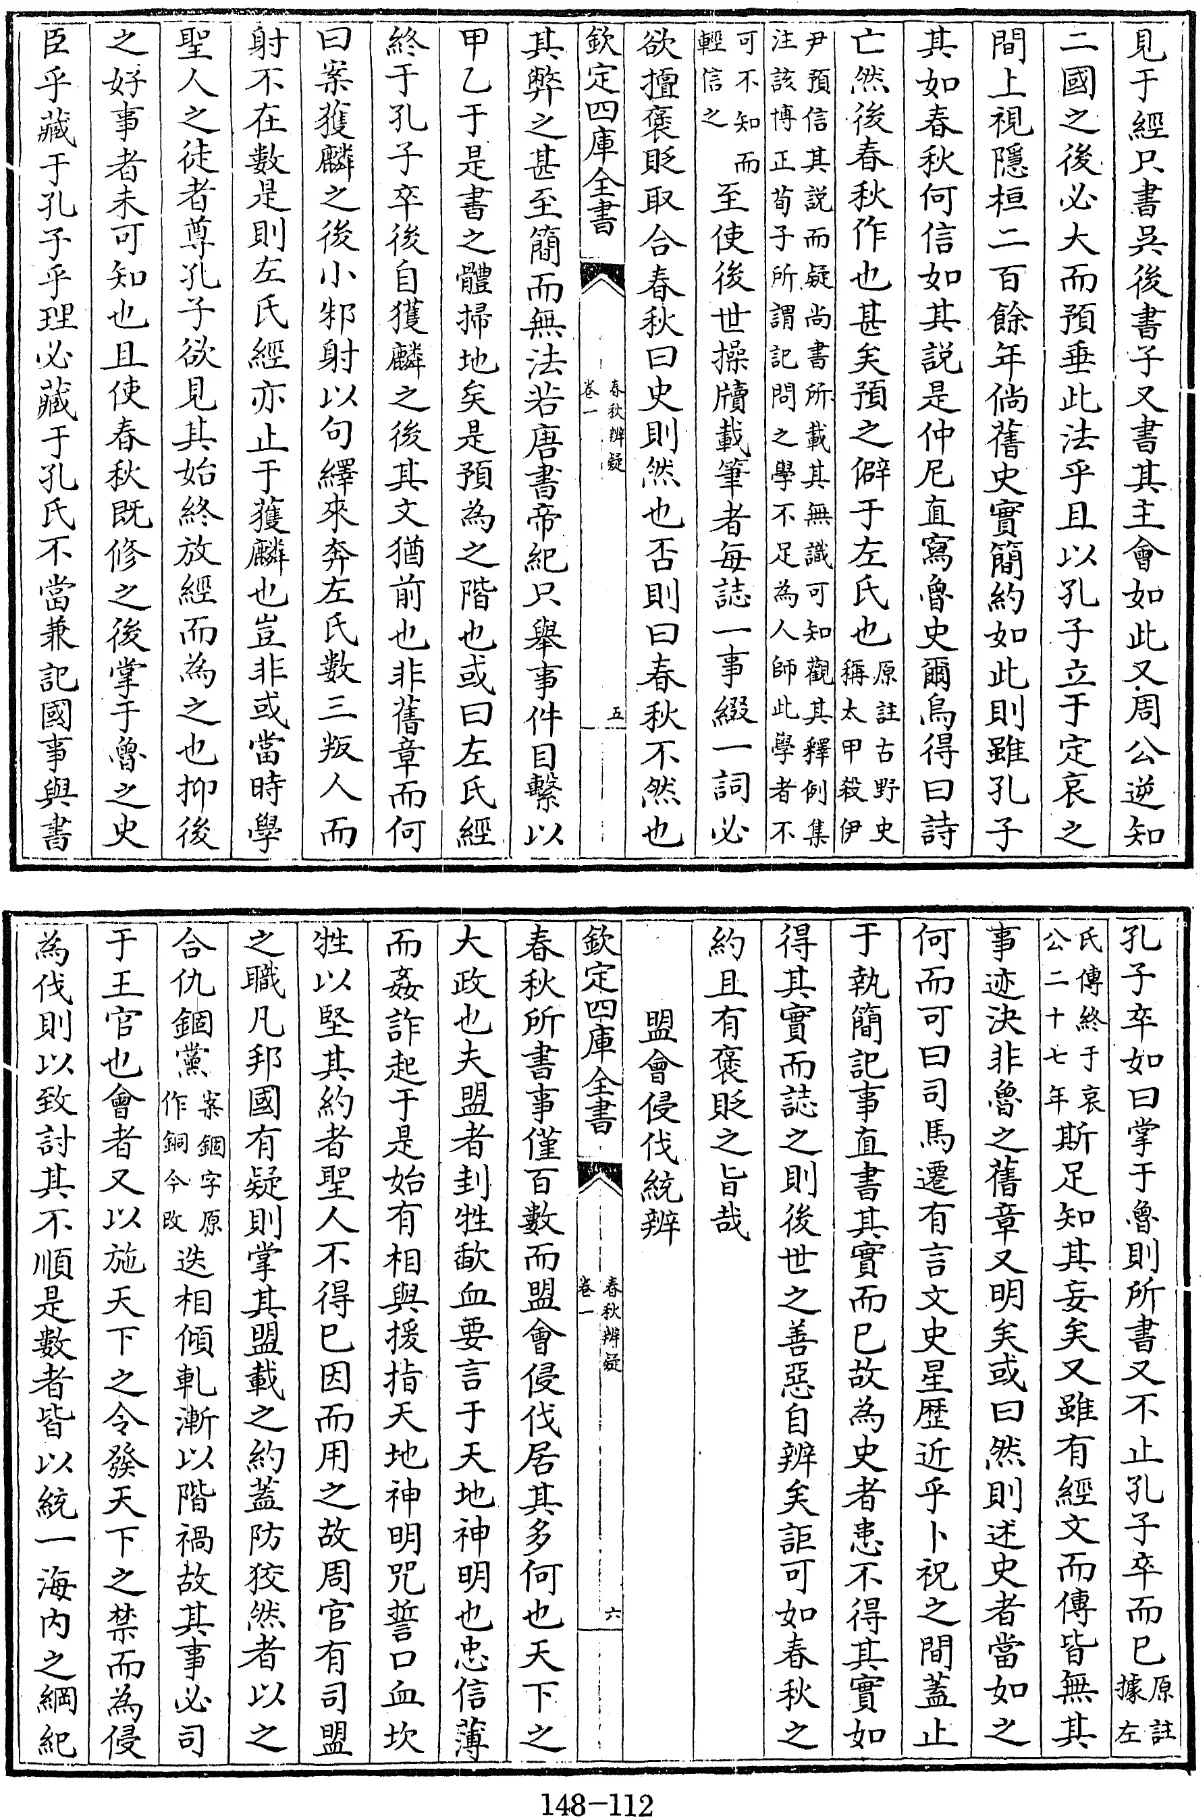 見于經只書吳後書子又書其主會如此又周公逆知
二國之後必大而預垂此法乎且以孔子立于定哀之
間上視隱桓二百餘年倘舊史實簡約如此則雖孔子
其如春秋何信如其說是仲尼直寫魯史爾烏得曰詩
亡然後春秋作也甚矣預之僻于左氏也原註古野史稱太甲殺伊
尹預信其說而疑尚書所載其無識可知觀其釋例集
注該博正荀子所謂記問之學不足為人師此學者不
可不知而輕信之至使後世操牘載筆者每誌一事綴一詞必
欲擅褒貶取合春秋曰史則然也否則曰春秋不然也
欽定四庫全書 春秋辨疑 卷一 五
其弊之甚至簡而無法若唐書帝紀只舉事件目繫以
甲乙于是書之體掃地矣是預為之階也或曰左氏經
終于孔子卒後自獲麟之後其文猶前也非舊章而何
曰案獲麟之後小邾射以句繹來奔左氏數三叛人而
射不在數是則左氏經亦止于獲麟也豈非或當時學
聖人之徒者尊孔子欲見其始終放經而為之也抑後
之好事者未可知也且使春秋既修之後掌于魯之史
臣乎藏于孔子乎理必藏于孔氏不當兼記國事與書
孔子卒如曰掌于魯則所書又不止孔子卒而已原註據左
氏傳終于哀公二十七年斯足知其妄矣又雖有經文而傳皆無其
事迹決非魯之舊章又明矣或曰然則述史者當如之
何而可曰司馬遷有言文史星歷近乎卜祝之間蓋止
于執簡記事直書其實而已故為史者患不得其實如
得其實而誌之則後世之善惡自辨矣詎可如春秋之
約且有褒貶之旨哉
盟會侵伐統辨
欽定四庫全書 春秋辨疑 卷一 六
春秋所書事僅百數而盟會侵伐居其多何也天下之
大政也夫盟者刲牲歃血要言于天地神明也忠信薄
而姦詐起于是始有相與援指天地神明咒誓口血坎
牲以堅其約者聖人不得已因而用之故周官有司盟
之職凡邦國有疑則掌其盟載之約蓋防狡然者以之
合仇錮黨案錮字原作銅今改迭相傾軋漸以階禍故其事必司
于王官也會者又以施天下之令發天下之禁而為侵
為伐則以致討其不順是數者皆以統一海内之綱紀
148-112